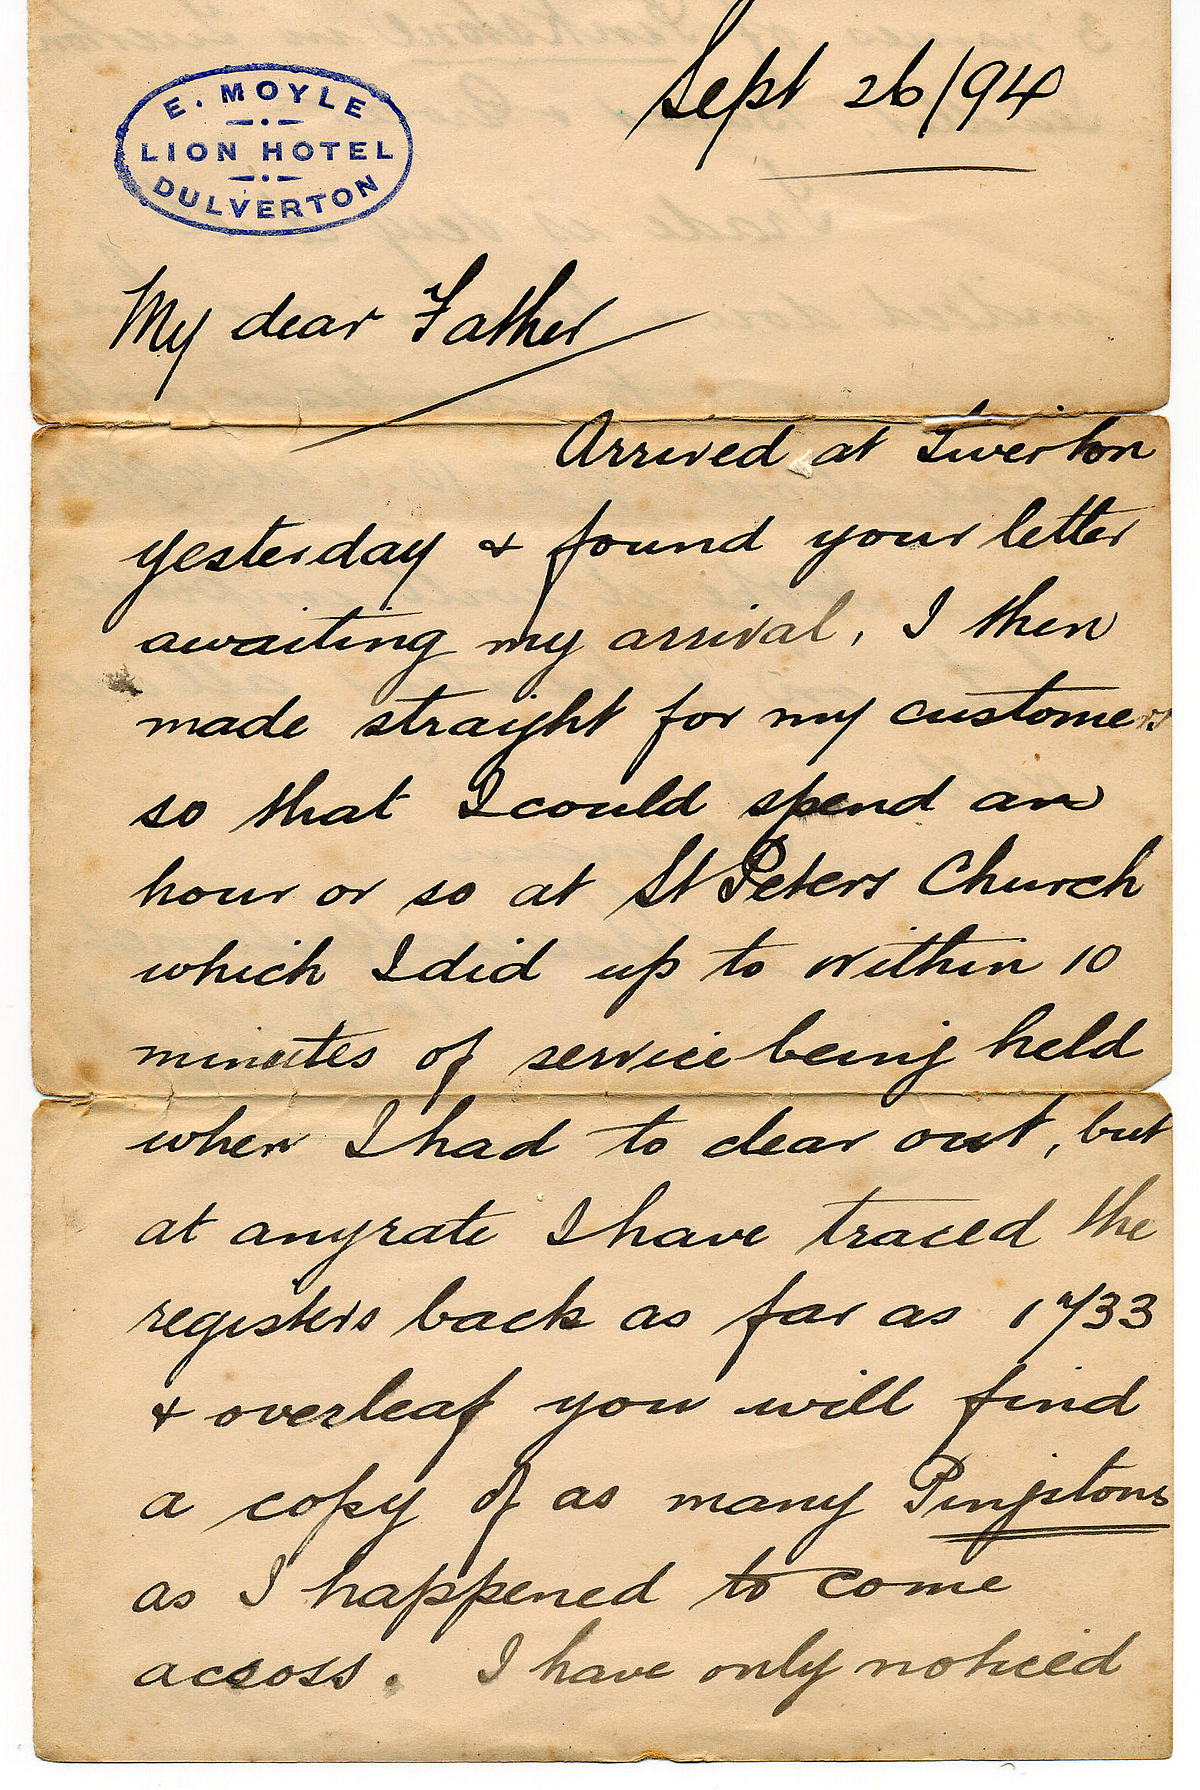 Sept 26/94
E. MOYLE
LION HOTEL
DULVERTON
My dear Father
Arrived at Tiverton
yesterday & found your letter
awaiting my arrival, I then
made straight for my customers
so that I could spend an
hour or so at St Peters Church
which I did up to within 10
minutes of service being held
when I had to clear out, but
at anyrate I have traced the
registers back as far as 1733
& overleaf you will find
a copy of as many Pinkstons
as I happened to come
across. I have only noticed